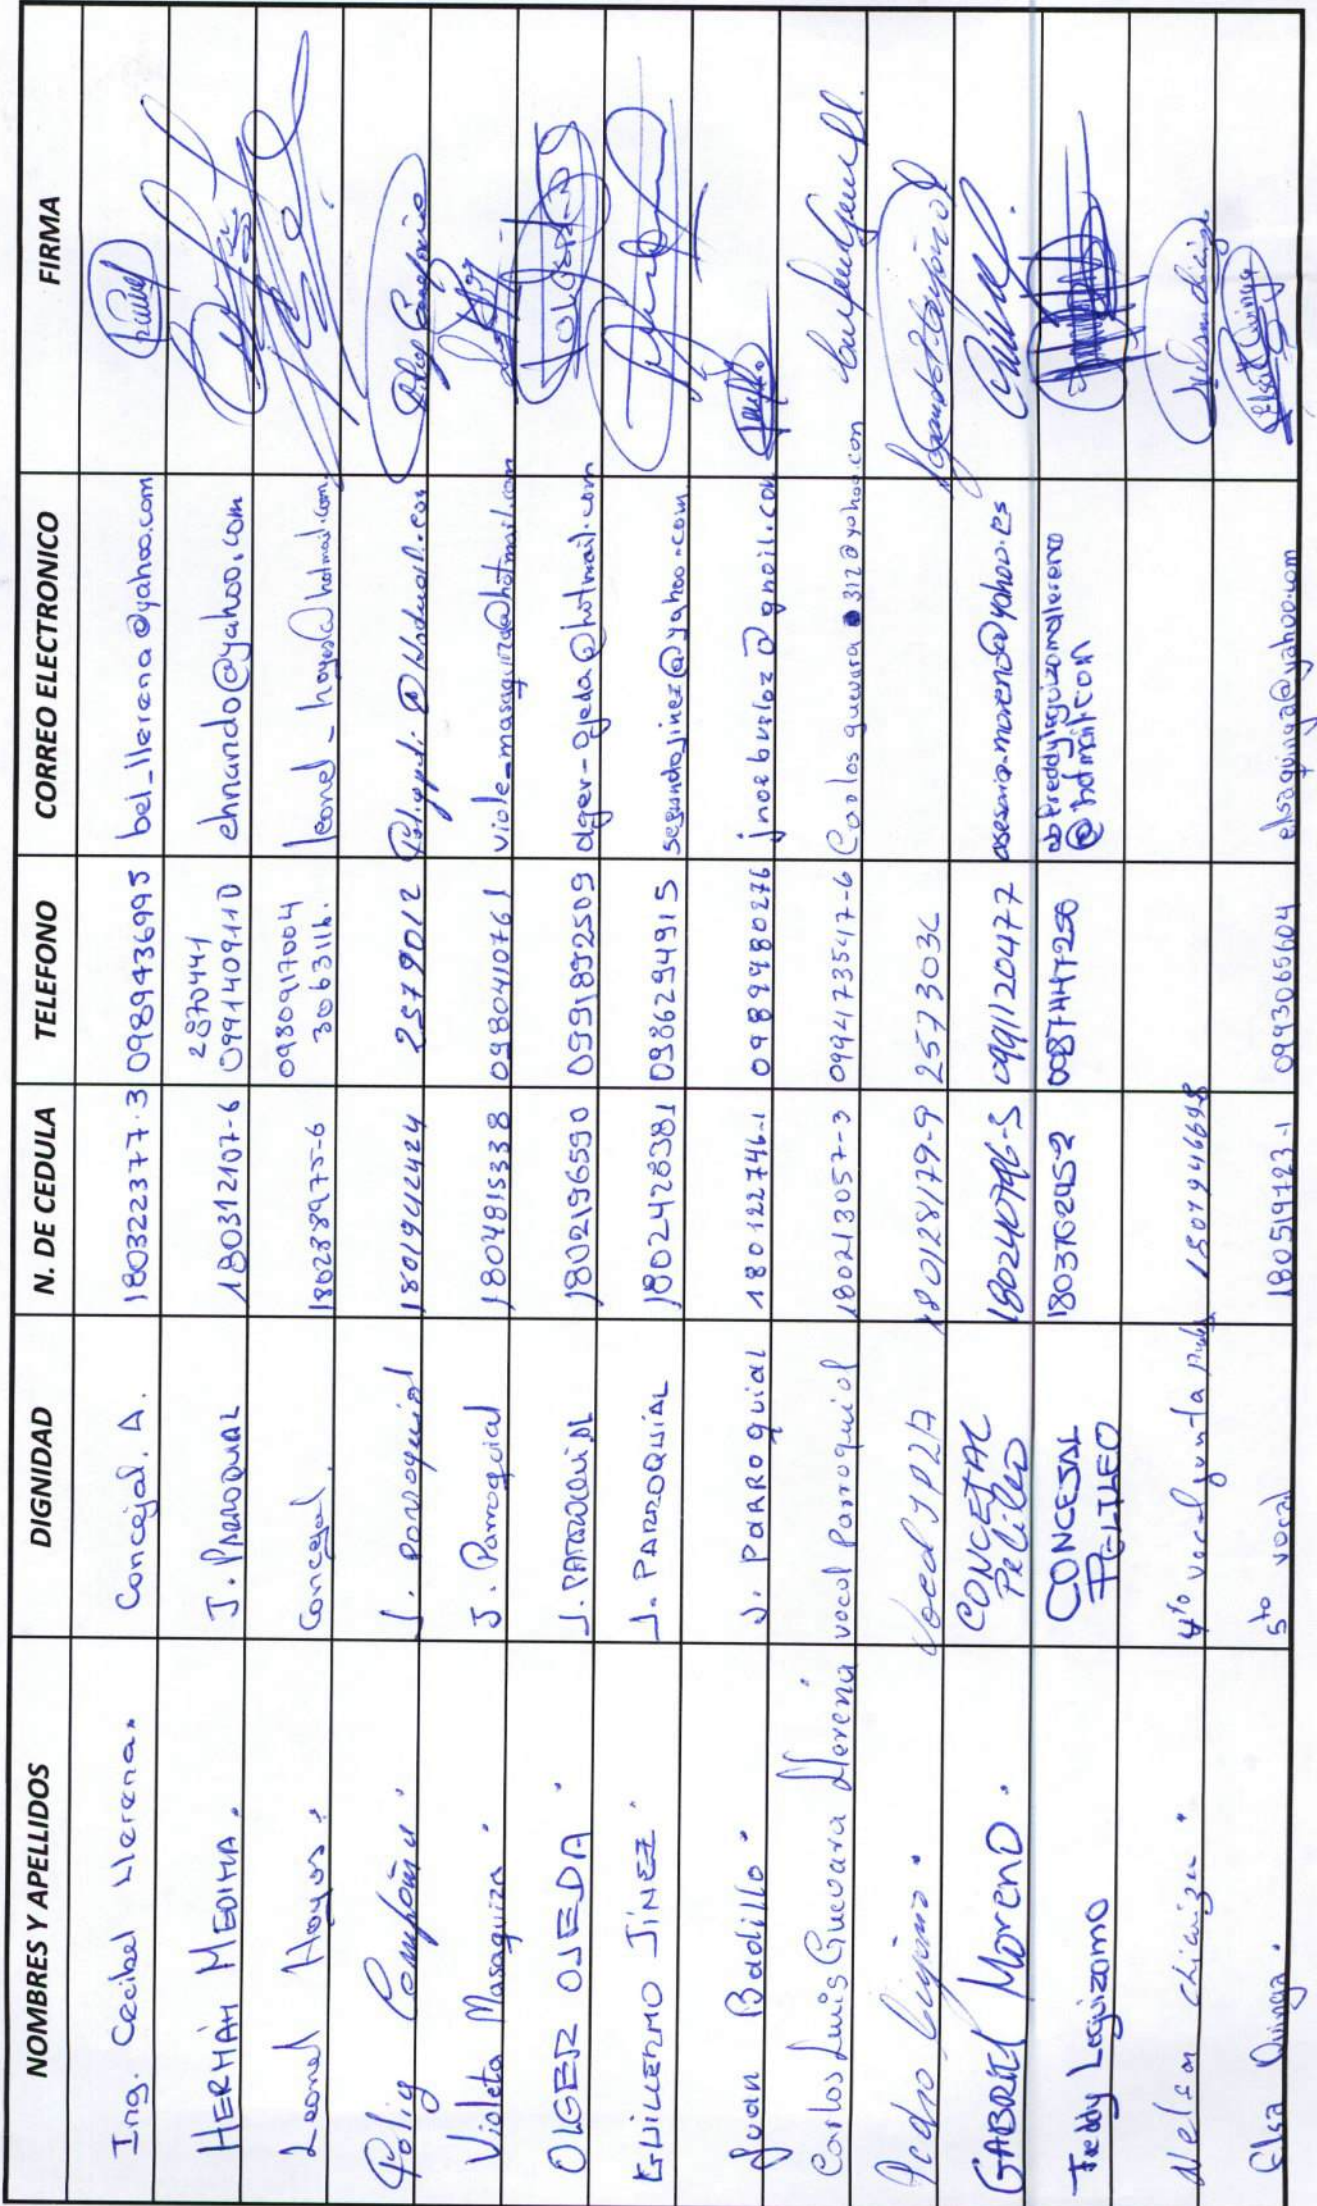 NOMBRES Y APELLIDOS DIGNIDAD N. DE CEDULA TELEFONO CORREO ELECTRONICO FIRMA
Ing. Cecibel Llerena. Concejal. A.180322377-3 0989436995 bel_llerena@yahoo.com
HERNÁN MEDINA. J. PARROQUIAL 180312107-6 2870441 0991409110 ehnando@yahoo.com
Leonel Hoyos. Concejal. 180238975-6 0980917004 3063116. leonel_hoyos@hotmail.com
J. Parroquial 1801942424 2579012
Violeta Masaquiza. J. Parroquial 1804815338 0980410761 viole_masaquiza@hotmail.com
OLGER OJEDA. J. PARROQUIAL 1802196590 0991892509 olger-ojeda@hotmail.com
GUILLERMO JÍNEZ. J. PARROQUIAL 1802428381 0986294915 segundojinez@yahoo.com
Juan Badillo. J. PARROquial 180122746-1 0989980276
Carlos Luis Guevara Llerena vocal Parroquial 180213057-3 099473547-6
Pedro Vocal 180128179-9
GABRIEL MORENO. CONCEJAL Pelileo 180240796-5 0991120477 asesoria-moreno@yahoo.es
Freddy Leguizamo CONCEJAL PELILEO
@hotmail.com
Nelson Chicaiza. 4to vocal junta
Elsa Quinga. 5to vocal 180519723-1 0993065604 elsaquinga@yahoo.com